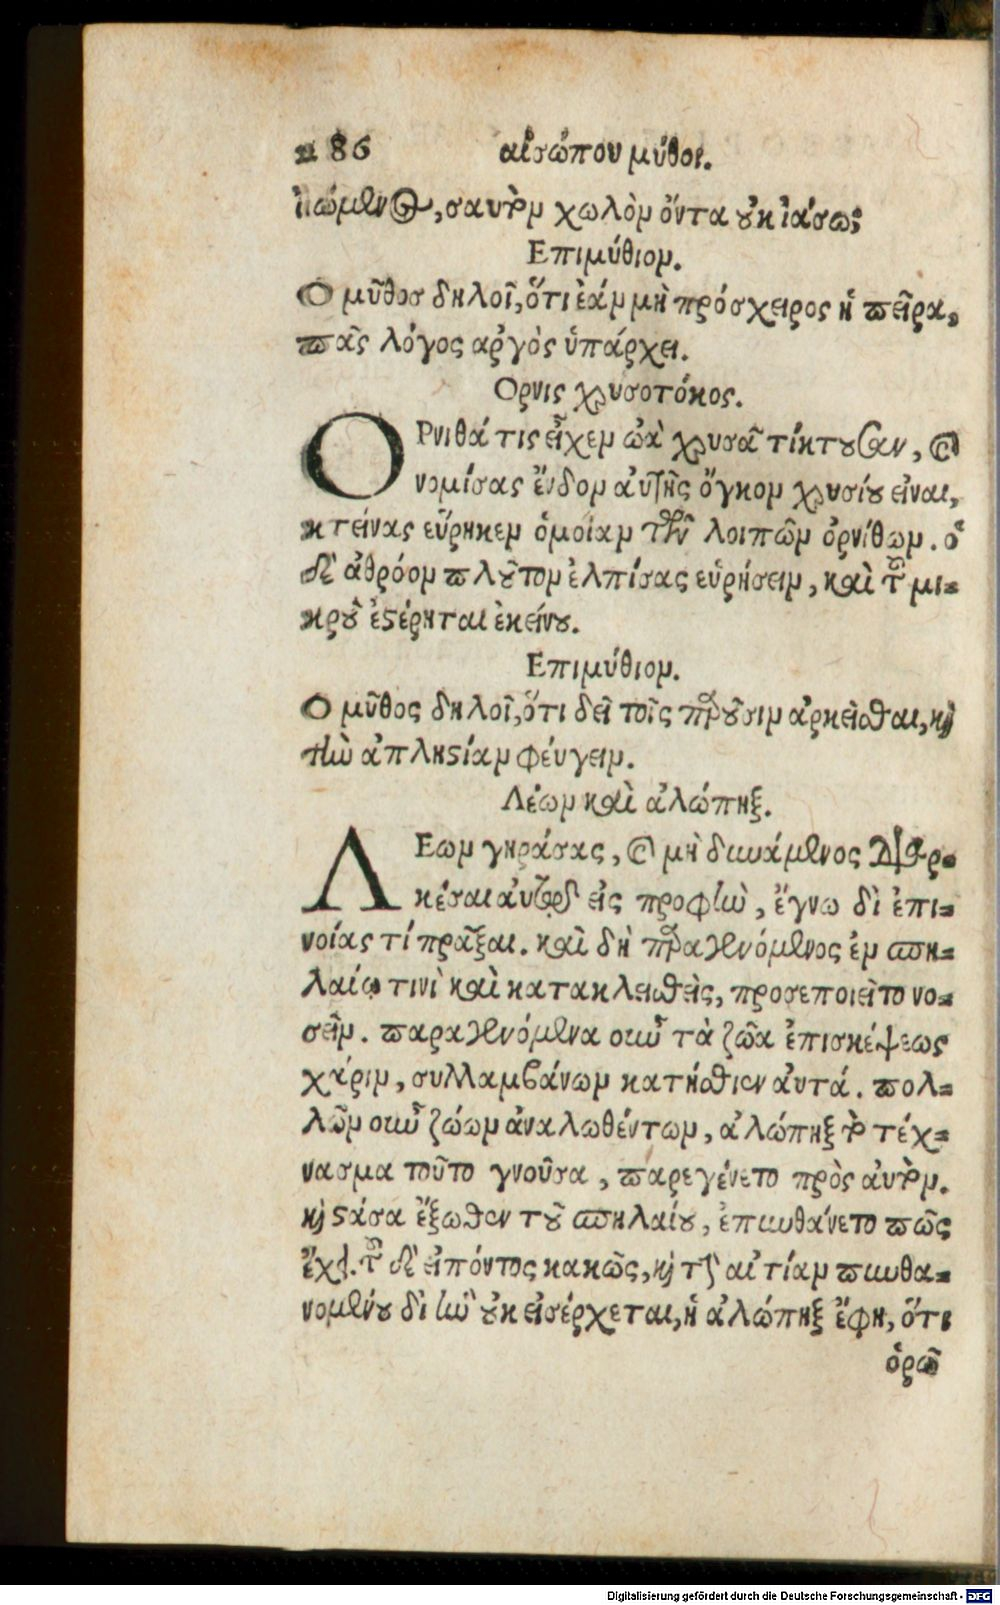 86 αἰσώπου μύθοι.
ἰώμενος, σαυτὸν χωλὸν ὄντα οὐκ ἰάσω;
Επιμύθιον.
Ο μῦθος δηλοῖ, ὅτι ἐὰν μὴ πρόσχειρος ἡ πεῖρα,
πᾶς λόγος ἀργὸς ὑπάρχει.
Ορνις χρυσοτόκος.
ΟΡνιθά τις εἶχεν ὠὰ χρυσᾶ τίκτουσαν, καὶ
νομίσας ἔνδον αὐτῆς ὄγκον χρυσίου εἶναι,
κτείνας εὕρηκεν ὁμοίαν τῶν λοιπῶν ὀρνίθων. ὁ
δὲ ἀθρόον πλοῦτον ἐλπίσας εὑρήσειν, καὶ τοῦ μι-
κροῦ ἐστέρηται ἐκείνου.
Επιμύθιον.
Ο μῦθος δηλοῖ, ὅτι δεῖ τοῖς παροῦσιν ἀρκεῖσθαι, καὶ
τὴν ἀπληστίαν φεύγειν.
Λέων καὶ ἀλώπηξ.
ΛΕων γηράσας, καὶ μὴ δυνάμενος διαρ-
κέσαι αὑτῷ εἰς τροφὴν, ἔγνω δι ἐπι-
νοίας τί πρᾶξαι. καὶ δὴ παραγενόμενος ἐν σπη-
λαίῳ τινὶ καὶ κατακλεισθεὶς, προσεποιεῖτο νο-
σεῖν. παραγενόμενα οὖν τὰ ζῶα ἐπισκέψεως
χάριν, συλλαμβάνων κατήσθιεν αὐτά. πολ-
λῶν οὖν ζώων ἀναλωθέντων, ἀλώπηξ τὸ τέχ-
νασμα τοῦτο γνοῦσα, παρεγένετο πρὸς αὐτὸν.
καὶ στάσα ἔξωθεν τοῦ σπηλαίου, ἐπυνθάνετο πῶς
ἔχει. τοῦ δὲ εἰπόντος κακῶς, καὶ τὴν αἰτίαν πυνθα-
νομένου δι ἣν οὐκ εἰσέρχεται, ἡ ἀλώπηξ ἔφη, ὅτι
ὁρῶ
Digitalisierung gefördert durch die Deutsche Forschungsgemeinschaft - DFG